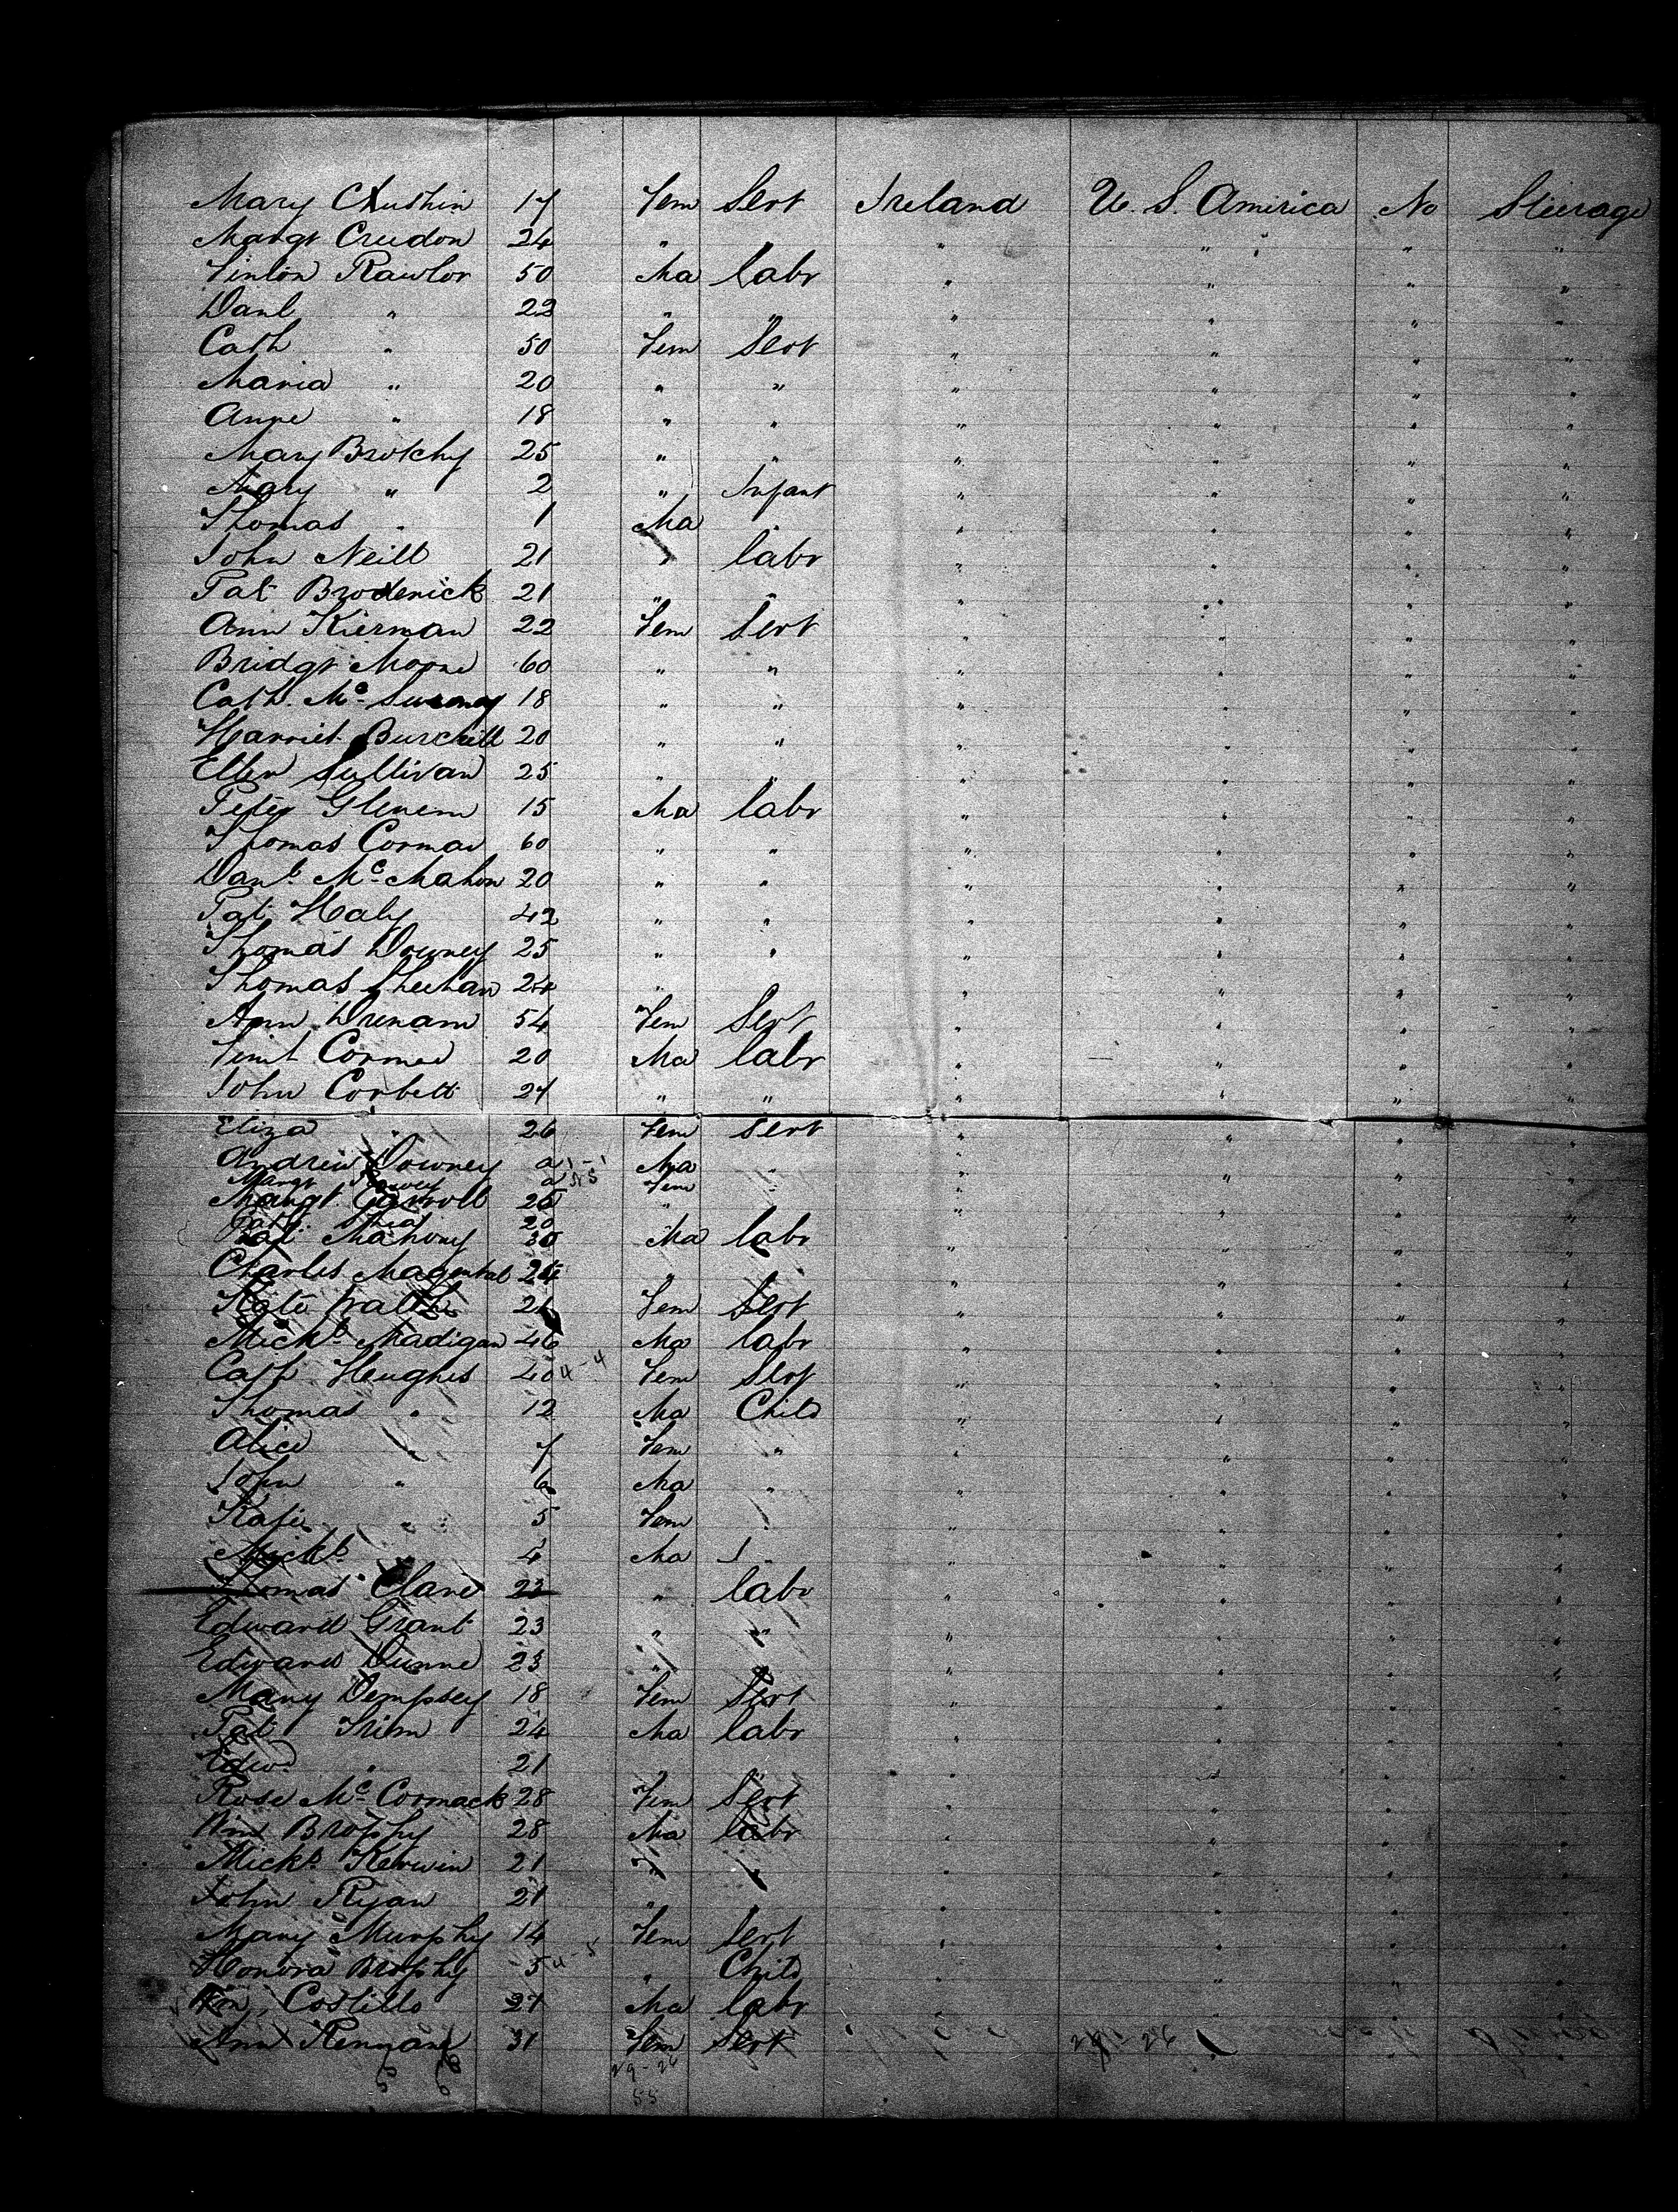 Mary Cushin 17 Fem Servt Ireland U. S. America No Steerage
Margt Creedon 24 " " " " "
Finton Rawlor 50 Ma Labr " " " "
Danl " 22 " " " " " "
Cath " 50 Fem Servt " " " "
Maria " 20 " " " " " "
Anne " 18 " " " " " "
Mary Brotchy 25 " " " " " "
Mary " 2 " Infant " " " "
Thomas " 1 Ma " " " " "
John Neill 21 " Labr " " " "
Pat Broderick 21 " " " " " "
Ann Kiernan 22 Fem Servt " " " "
Bridgt Moore 60 " " " " " "
Cath. Mc 18 " " " " " "
Harriet Burchill 20 " " " " " "
Ellen Sullivan 25 " " " " " "
Peter 15 Ma Labr " " " "
Thomas Cormac 60 " " " " " "
Danl. Mc Mahon 20 " " " " " "
Pat Haly 42 " " " " " "
Thomas Downey 25 " " " " " "
Thomas Sheehan 24 " " " " "
Ann Drenam 54 Fem Servt " " " "
Cormac 20 Ma Labr " " " "
John Corbett 27 " " " " " "
Eliza " 26 Fem Servt " " " "
Andrew Downey Ma " " " " "
Margt Fem "
Margt. Carroll 25 " " " " "
Cath. Shea 20
Pat Mahony 30 Ma Labr " " " "
Charles 24 " " " " "
Kate Walsh 21 Fem Servt " " " "
Michl. Madigan 46 Ma Labr " " " "
Cath Heughes 40 4-4 Fem Servt " " " "
Thomas " 12 Ma Child " " " "
Alice " 7 Fem " " " " "
John " 6 Ma " " " " "
Katie " 5 Fem " " " " "
Michl. " 4 Ma " " " "
Thomas Clane 23 " Labr " " " "
Edward Grant 23 " " " " " "
Edward Dunne 23 " " " " " "
Mary Dempsey 18 Fem Servt " " " "
Pat Trim 24 Ma Labr " " " "
Edwd " 21 " " " "
Rose Mc Cormack 28 Fem Servt " " " "
Wm Brophy 28 Ma Labr " " " "
Michl. Kerwin 21 " " " " " "
John Ryan 21 " " " " "
Mary Murphy 14 Fem Servt " " " "
Honora Brophy 5 " Child " " " "
Wm Costillo 27 Ma Labr " " " "
Ann 31 Fem Servt
29-26
55